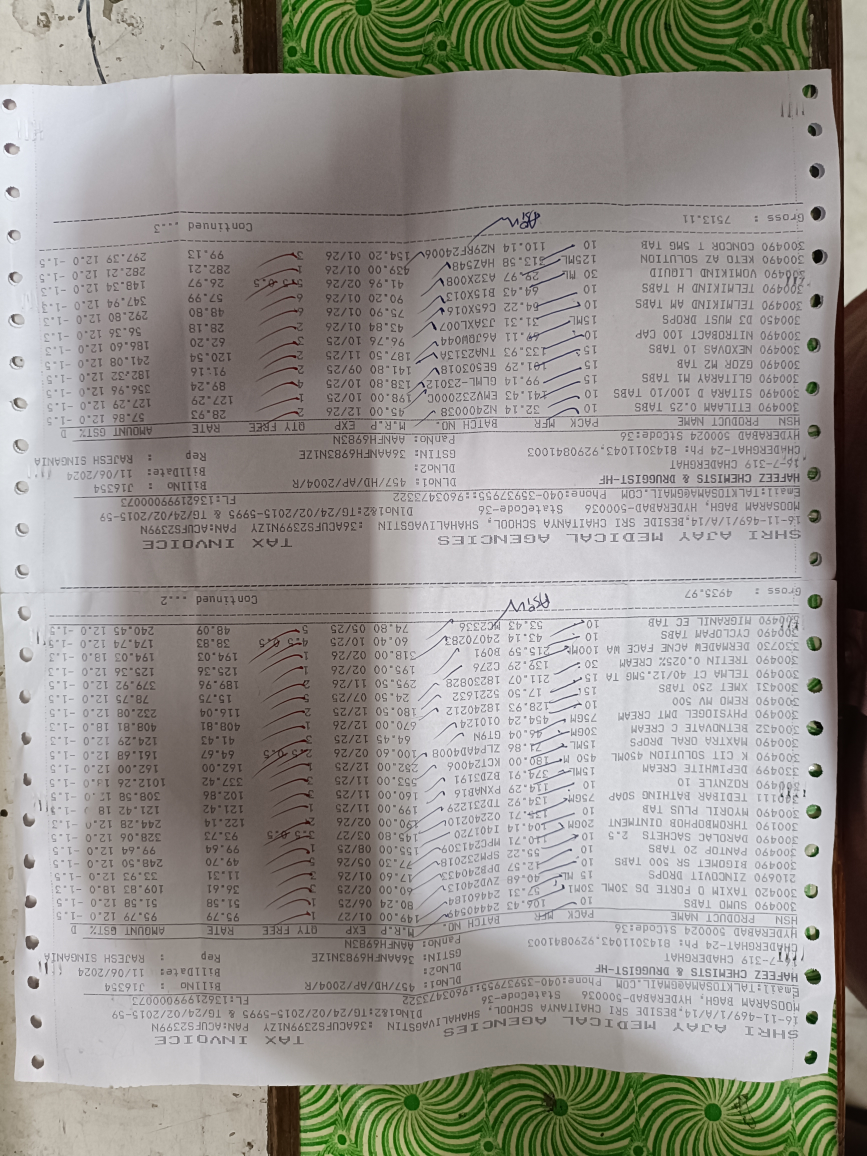 SHRI AJAY MEDICAL AGENCIES TAX INVOICE
16-11-469/1/A/14,BESIDE SRI CHAITANYA SCHOOL, SHAHALIVAGSTIN :36ACUFS2399N1ZY PAN:ACUFS2399N
MOOSARAM BAGH, HYDERABAD-500036 StateCode-36 DlNo1&2:TG/24/02/2015-5995 & TG/24/02/2015-59
Email:TALKTOSAM@GMAIL.COM Phone:040-35937955::9603473322 FL:13621999000073
HAFEEZ CHEMISTS & DRUGGIST-HF DLNo1: 457/HD/AP/2004/R BillNo : J16354
16-7-319 CHADERGHAT DLNo2: BillDate: 11/06/2024
CHADERGHAT-24 Ph: 8143011043,9290841003 GSTIN: 36AANFH6983N1ZE Rep : RAJESH SINGANIA
HYDERABAD 500024 StCode:36 PanNo: AANFH6983N
HSN PRODUCT NAME PACK MFR BATCH NO. M.R.P EXP QTY FREE RATE AMOUNT GST% D
300490 SUMO TABS 10 106.43 24440549 149.00 01/27 1 95.79 95.79 12.0 -1.5
300420 TAXIM O FORTE DS 30ML 30Ml 57.31 24440184 80.24 06/25 1 51.58 51.58 12.0 -1.5
210690 ZINCOVIT DROPS 15 ML 40.68 ZVD24013 60.00 02/25 3 36.61 109.83 18.0 -1.3
300490 BIGOMET SR 500 TABS 10 12.57 DPB240433 17.60 01/26 3 11.31 33.93 12.0 -1.5
300490 PANTOP 20 TABS 10 55.22 SPM232018 77.30 05/26 5 49.70 248.50 12.0 -1.5
300490 DAROLAC SACHETS 2.5 10 110.71 MPC241309 155.00 08/25 1 99.64 99.64 12.0 -1.5
300190 THROMBOPHOB OINTMENT 20GM 104.14 IA01720 145.80 03/27 3.5 0.5 93.73 328.06 12.0 -1.5
300490 MYORIL PLUS TAB 10 135.71 02240210 190.00 02/26 2 122.14 244.28 12.0 -1.3
340111 TEDIBAR BATHING SOAP 75GM 134.92 TPD231229 199.00 11/25 1 121.42 121.42 18
300490 ROZNILE 10 10 114.29 PXNAT816 160.00 11/25 3 102.86 308.58 -1.5
330499 DEPIWHITE CREAM 15ML 374.91 BZD3191 553.00 11/25 3 337.42 1012.26 18.0 -1.5
300490 K CIT SOLUTION 450ML 450 M 180.00 KCTC24006 252.00 12/25 1 162.00 162.00 12.0 -1.5
300490 MAXTRA ORAL DROPS 15ML 71.86 ZLPAD04008 100.60 02/26 2.5 0.5 64.67 161.68 12.0 -1.5
300432 BETNOVATE C CREAM 30GM 46.04 GT6N 64.45 12/25 3 41.43 124.29 12.0 -1.5
300490 PHYSIOGEL DMT CREAM 75GM 454.24 010124 670.00 12/26 1 408.81 408.81 18.0 -1.5
300490 REMO MV 500 10 128.93 18240212 180.50 12/25 2 116.04 232.08 12.0 -1.5
300431 XMET 250 TABS 15 17.50 5221632 24.50 07/25 5 15.75 78.75 12.0 -1.5
300490 TELMA CT 40/12.5MG TA 15 211.07 18230828 295.50 11/26 2 189.96 379.92 12.0 -1.5
300490 TRETIN 0.025% CREAM 30 139.29 C276 195.00 02/26 1 125.36 125.36 12.0 -1.3
330730 DERMADEW ACNE FACE WA 100Ml 215.59 B091 318.00 02/26 1 194.03 194.03 18.0 -1.3
300490 CYCLOPAM TABS 10 43.14 24070283 60.40 10/25 4.5 0.5 38.83 174.74 12.0 -1.5
300490 MIGRANIL EC TAB 10 53.43 MC2336 74.80 05/25 5 48.09 240.45 12.0 -1.5
Gross : 4935.97 Continued ...2
SHRI AJAY MEDICAL AGENCIES TAX INVOICE
16-11-469/1/A/14,BESIDE SRI CHAITANYA SCHOOL, SHAHALIVAGSTIN :36ACUFS2399N1ZY PAN:ACUFS2399N
MOOSARAM BAGH, HYDERABAD-500036 StateCode-36 DlNo1&2:TG/24/02/2015-5995 & TG/24/02/2015-59
Email:TALKTOSAM@GMAIL.COM Phone:040-35937955::9603473322 FL:13621999000073
HAFEEZ CHEMISTS & DRUGGIST-HF DLNo1: 457/HD/AP/2004/R BillNo : J16354
16-7-319 CHADERGHAT DLNo2: BillDate: 11/06/2024
CHADERGHAT-24 Ph: 8143011043,9290841003 GSTIN: 36AANFH6983N1ZE Rep : RAJESH SINGANIA
HYDERABAD 500024 StCode:36 PanNo: AANFH6983N
HSN PRODUCT NAME PACK MFR BATCH NO. M.R.P EXP QTY FREE RATE AMOUNT GST% D
300490 ETILAAM 0.25 TABS 10 32.14 N2400038 45.00 12/26 2 28.93 57.86 12.0 -1.5
300490 SITARA D 100/10 TABS 10 141.43 EMV232000C 198.00 10/25 1 127.29 127.29 12.0 -1.5
300490 GLITARAY M1 TABS 15 99.14 GLML-23012 138.80 10/25 4 89.24 356.96 12.0 -1.5
300490 GZOR M2 TAB 15 101.29 GES03018 141.80 09/25 2 91.16 182.32 12.0 -1.5
300490 NEXOVAS 10 TABS 15 133.93 TNA2313A 187.50 11/25 2 120.54 241.08 12.0 -1.5
300490 NITROBACT 100 CAP 10 69.11 AGJ6OW044 96.76 10/25 3 62.20 186.60 12.0 -1.5
300450 D3 MUST DROPS 15ML 31.31 J3AXL007 43.84 01/26 2 28.18 56.36 12.0 -1.3
300490 TELMIKIND AM TABS 10 54.22 C65X016 75.90 01/26 6 48.80 292.80 12.0 -1.5
300490 TELMIKIND H TABS 10 64.43 B15X013 90.20 01/26 6 57.99 347.94 12.0 -1.3
300490 VOMIKIND LIQUID 30 ML 29.97 A32X008 41.96 02/26 5.5 0.5 26.97 148.34 12.0 -1.3
300490 KETO AZ SOLUTION 125ML 313.58 HAZ548 439.00 01/26 1 282.21 282.21 12.0 -1.5
300490 CONCOR T 5MG TAB 10 110.14 N29RF24006 154.20 01/26 3 99.13 297.39 12.0 -1.5
Gross : 7513.11 Continued ...3